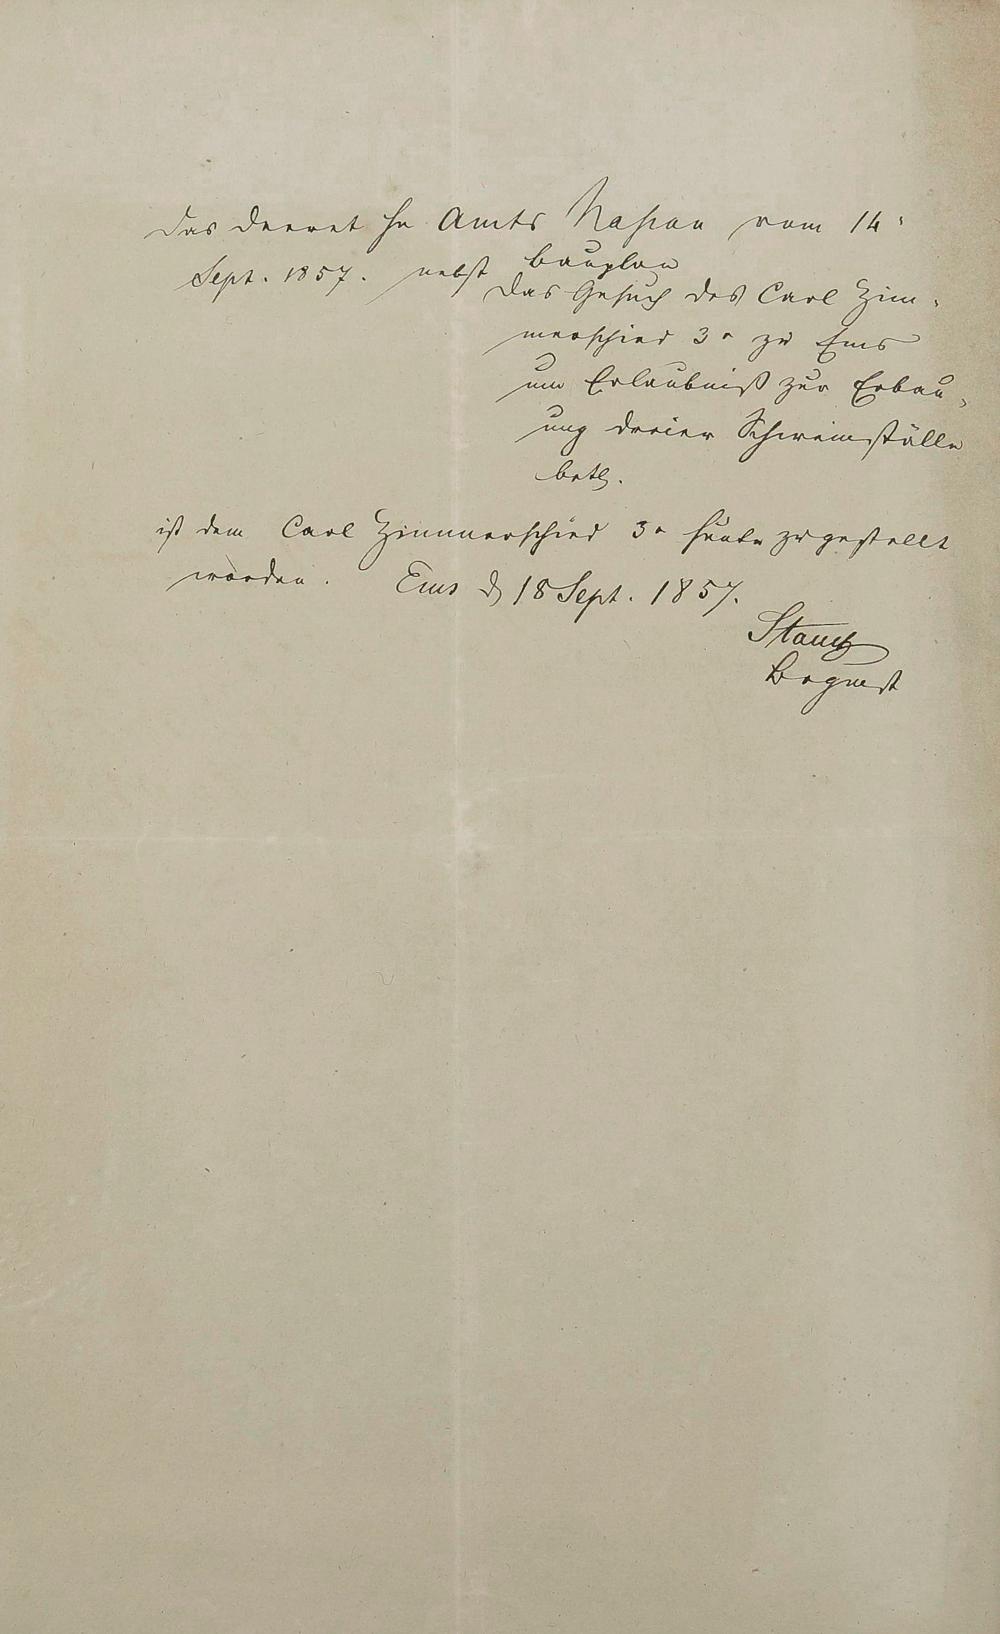 Das Decret Hz. Amts Nassau vom 14
Sept. 1857. nebst Bauplan
das Gesuch des Carl Zim-
merschied 3r zu Ems
um Erlaubniß zur Erbau-
ung dreier Schweinställe
betr.
ist dem Carl Zimmerschied 3r heute zugestellt
worden. Ems d 18 Sept. 1857.